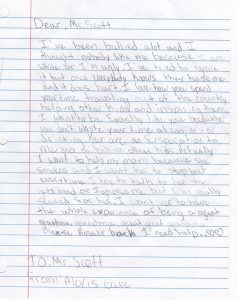 Dear, Mr. Scott
I've been bullied alot and I
thought nobody like me because I am
white or I'm ugly. I've tried to ignore
it but once everybody thanks they tease me
and it does hurt. I love how you spend
your time travelling out of the country
helping other kids and inspiring them.
I want to be Exactly like you because
you don't waste your time at casinos or
drinking You are an
I want to help my mom because she
smokes and I want her to stop but
everytime I try to talk to her she
gets mad or ignores me but I'm really
scared for her. I want her to have
the whole experience of being a great
grandma,
Please Answer back I need help,
To: Mr. Scott
From: Alexis cave